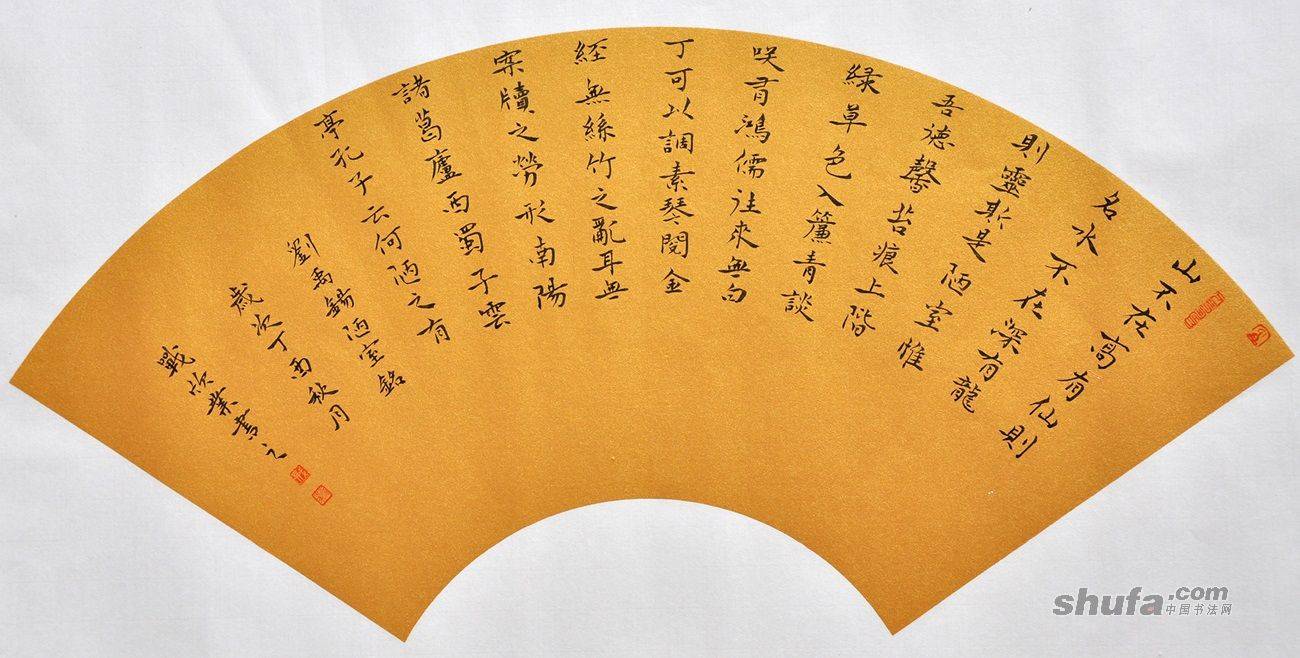 山不在高有仙則
名水不在深有龍
則靈斯是陋室惟
吾德馨苔痕上階
綠草色入簾青談
咲有鴻儒往來無白
丁可以調素琴閱金
經無絲竹之亂耳無
案牘之勞形南陽
諸葛廬西蜀子雲
亭孔子云何陋之有
劉禹錫陋室銘
歲次丁酉秋月
戰欣業書之
shufa.com
中国书法网